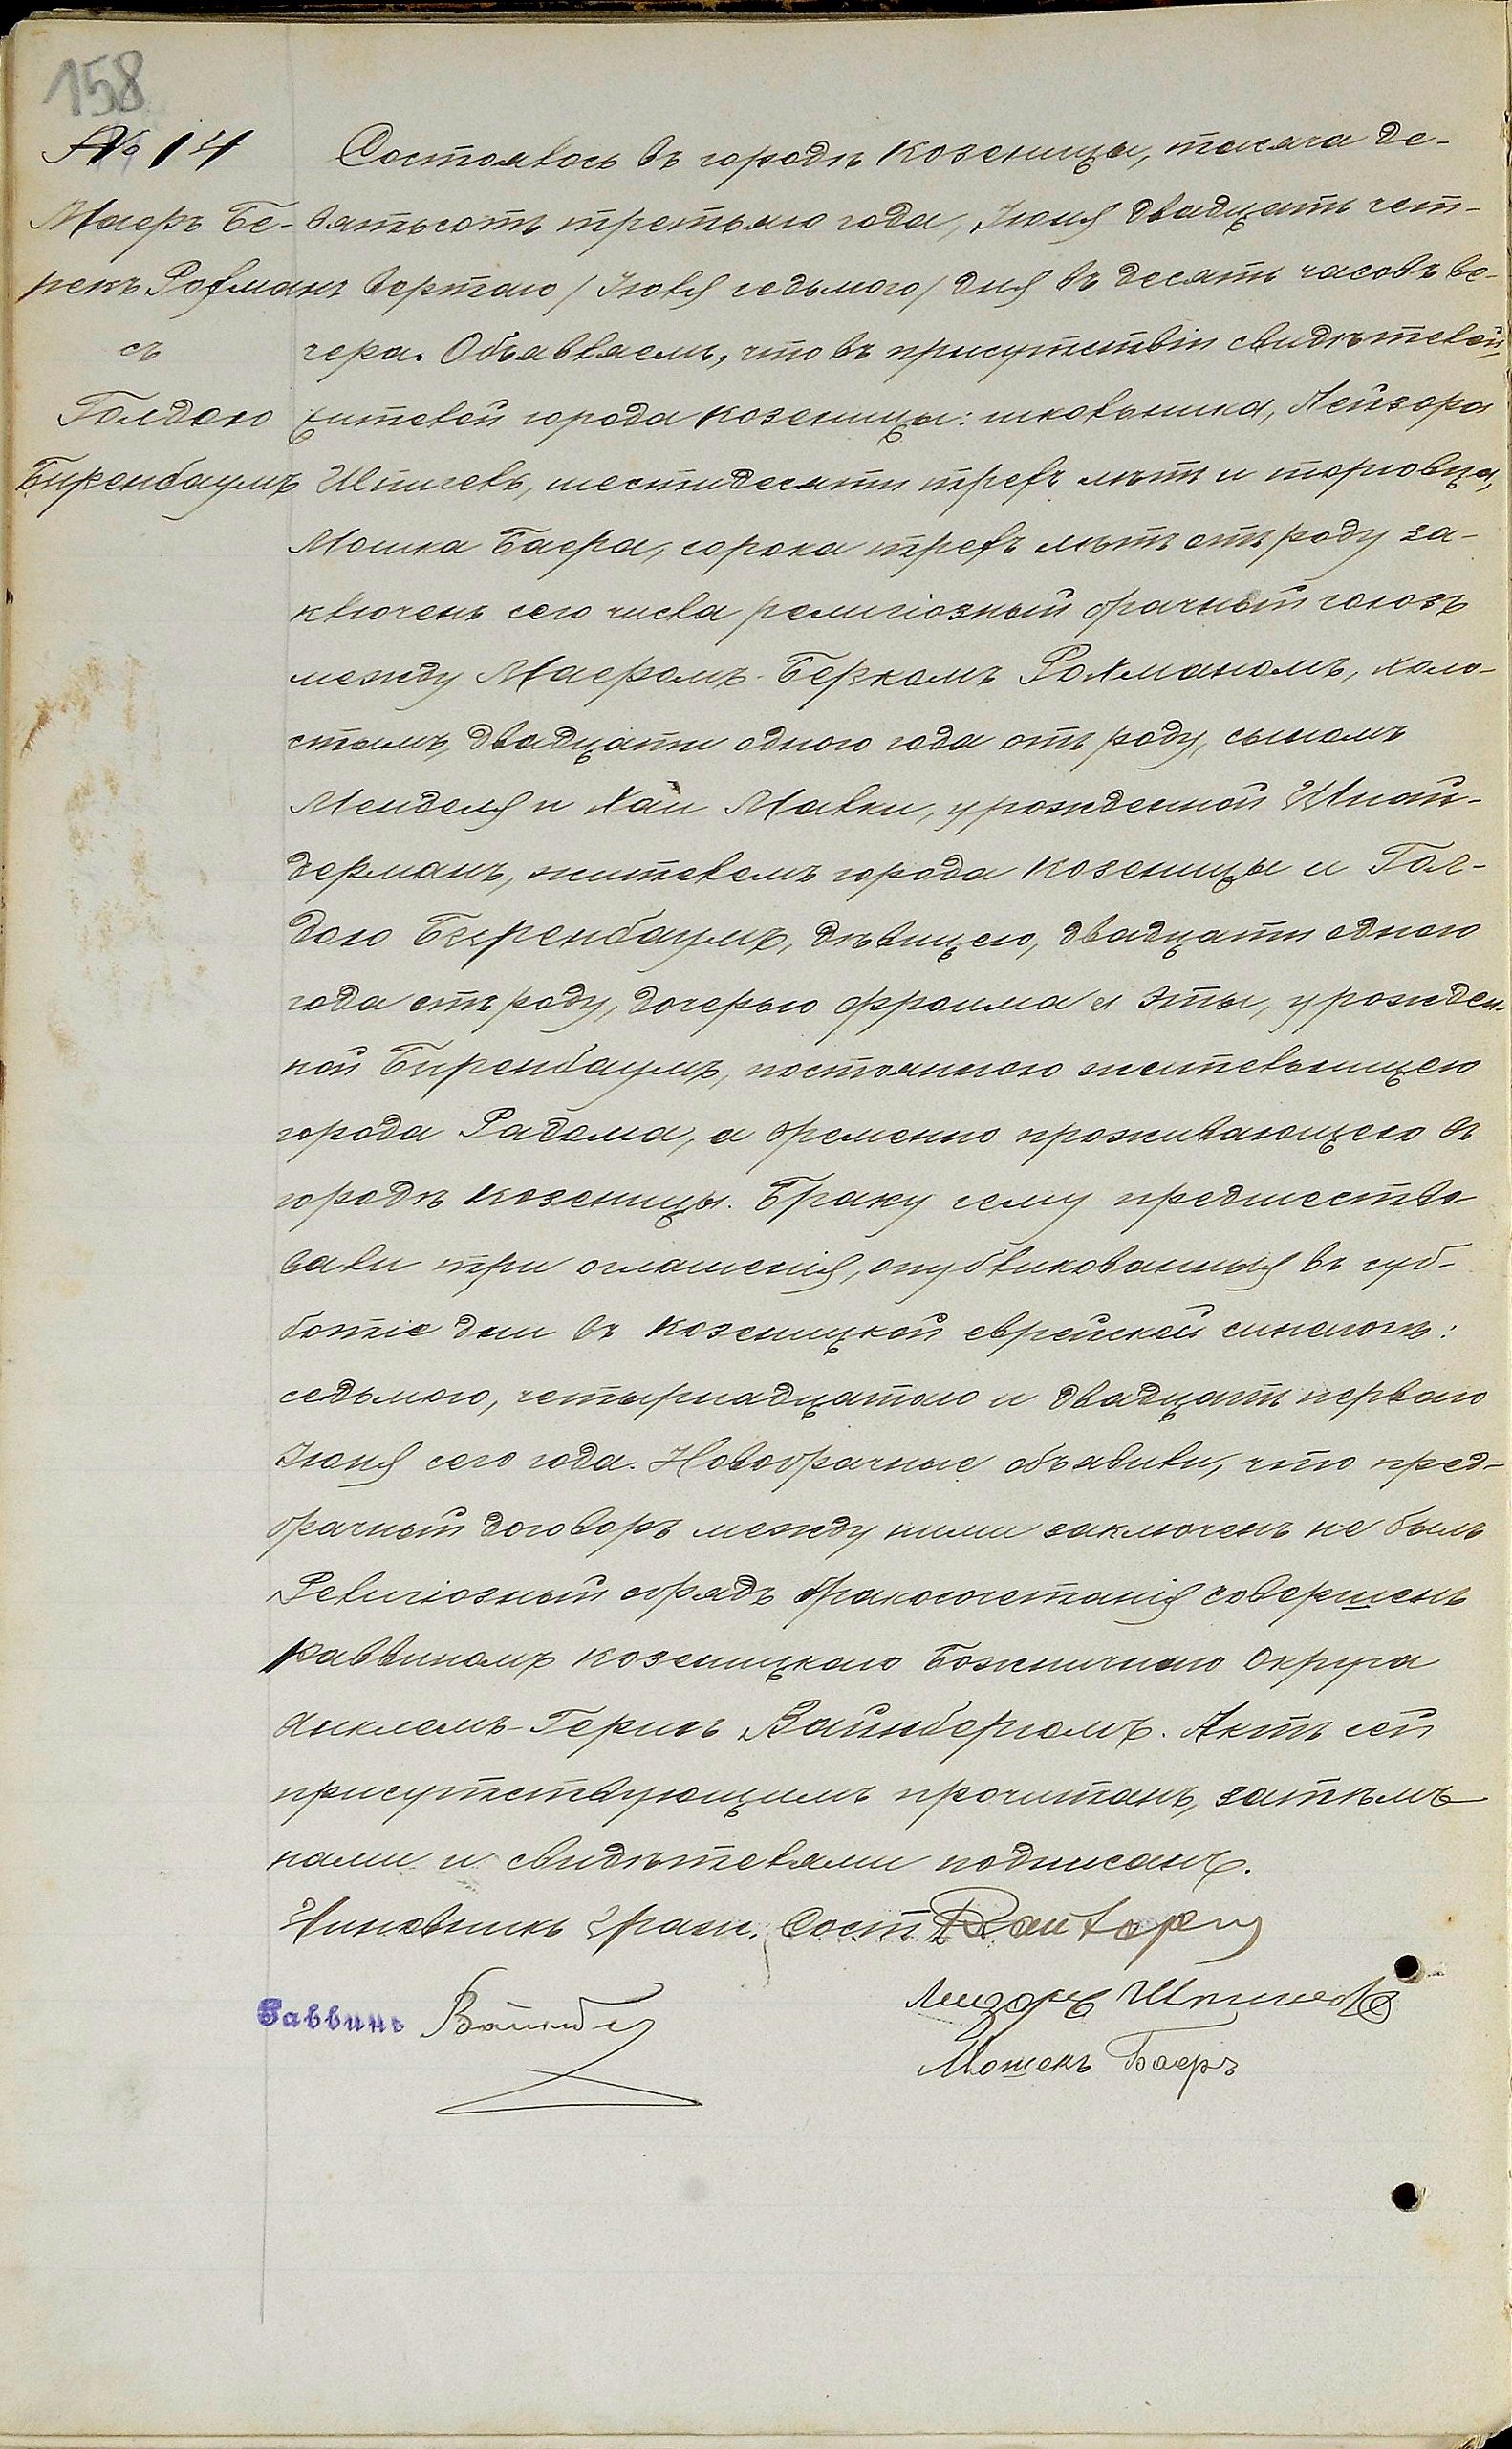 158
№ 14
Маеръ Бе-
рекъ Рохманъ
съ
Голдою
Биренбаумъ
Состоялось въ городѣ Козеницы, тысяча де-
вятьсотъ третьяго года, Іюня двадцать чет-
вертаго / Іюля седьмого / дня въ десять часовъ ве-
чера. Объявляемъ, что въ присутствіи свидѣтелей,
жителей города Козеницы: школьника, Лейзора
Шпигель, шестидесяти трехъ лѣтъ и торговца,
Мошка Баера, сорока трехъ лѣтъ отъ роду за-
ключенъ сего числа религіозный брачный союзъ
между Маеромъ-Беркомъ Рохманомъ, холо-
стымъ, двадцати одного года отъ роду, сыномъ
Менделя и Хаи Малки, урожденной Шнай-
дерманъ, жителемъ города Козеницы и Гол-
дою Биренбаумъ, дѣвицею, двадцати одного
года отъ роду, дочерью Фроима и Эты, урожден-
ной Биренбаумъ, постоянною жительницею
города Радома, а временно проживающею въ
городѣ Козеницы. Браку сему предшество-
вали три оглашенія, опубликованныя въ суб-
ботніе дни въ Козеницкой еврейской синагогѣ:
седьмого, четырнадцатаго и двадцать перваго
Іюня сего года. Новобрачные объявили, что пред-
брачный договоръ между ними заключенъ не былъ
Религіозный обрядъ бракосочетанія совершенъ
Раввиномъ Козеницкаго Божничнаго Округа
Янклемъ-Герцъ Вайнбергомъ. Актъ сей
присутствующимъ прочитанъ, затѣмъ
нами и свидѣтелями подписанъ.
Чиновникъ Граж. Сост.
Лейзоръ Шпигель
Раввинъ Вайнбе
Мошекъ Баеръ